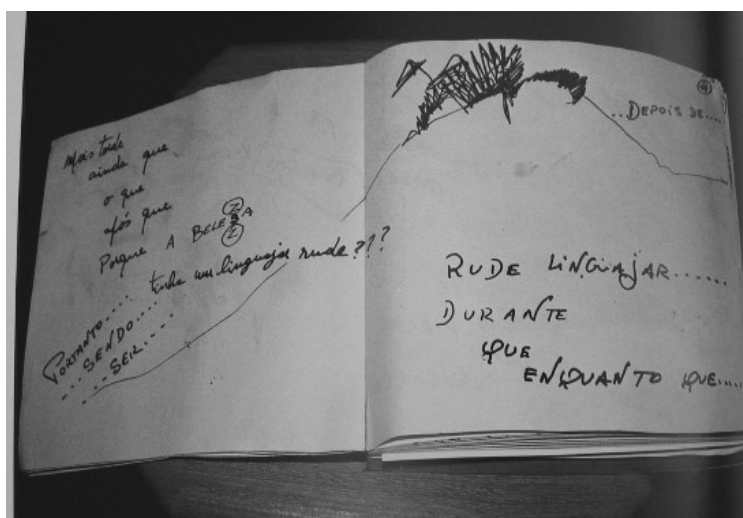 mais tarde
ainda que
o que
após que
Porque A BELEZA
tinha um linguajar rude?!?
PORTANTO....
...SENDO....
...SER....
④
...DEPOIS DE....
RUDE LINGUAJAR......
DURANTE
QUE
ENQUANTO QUE.....